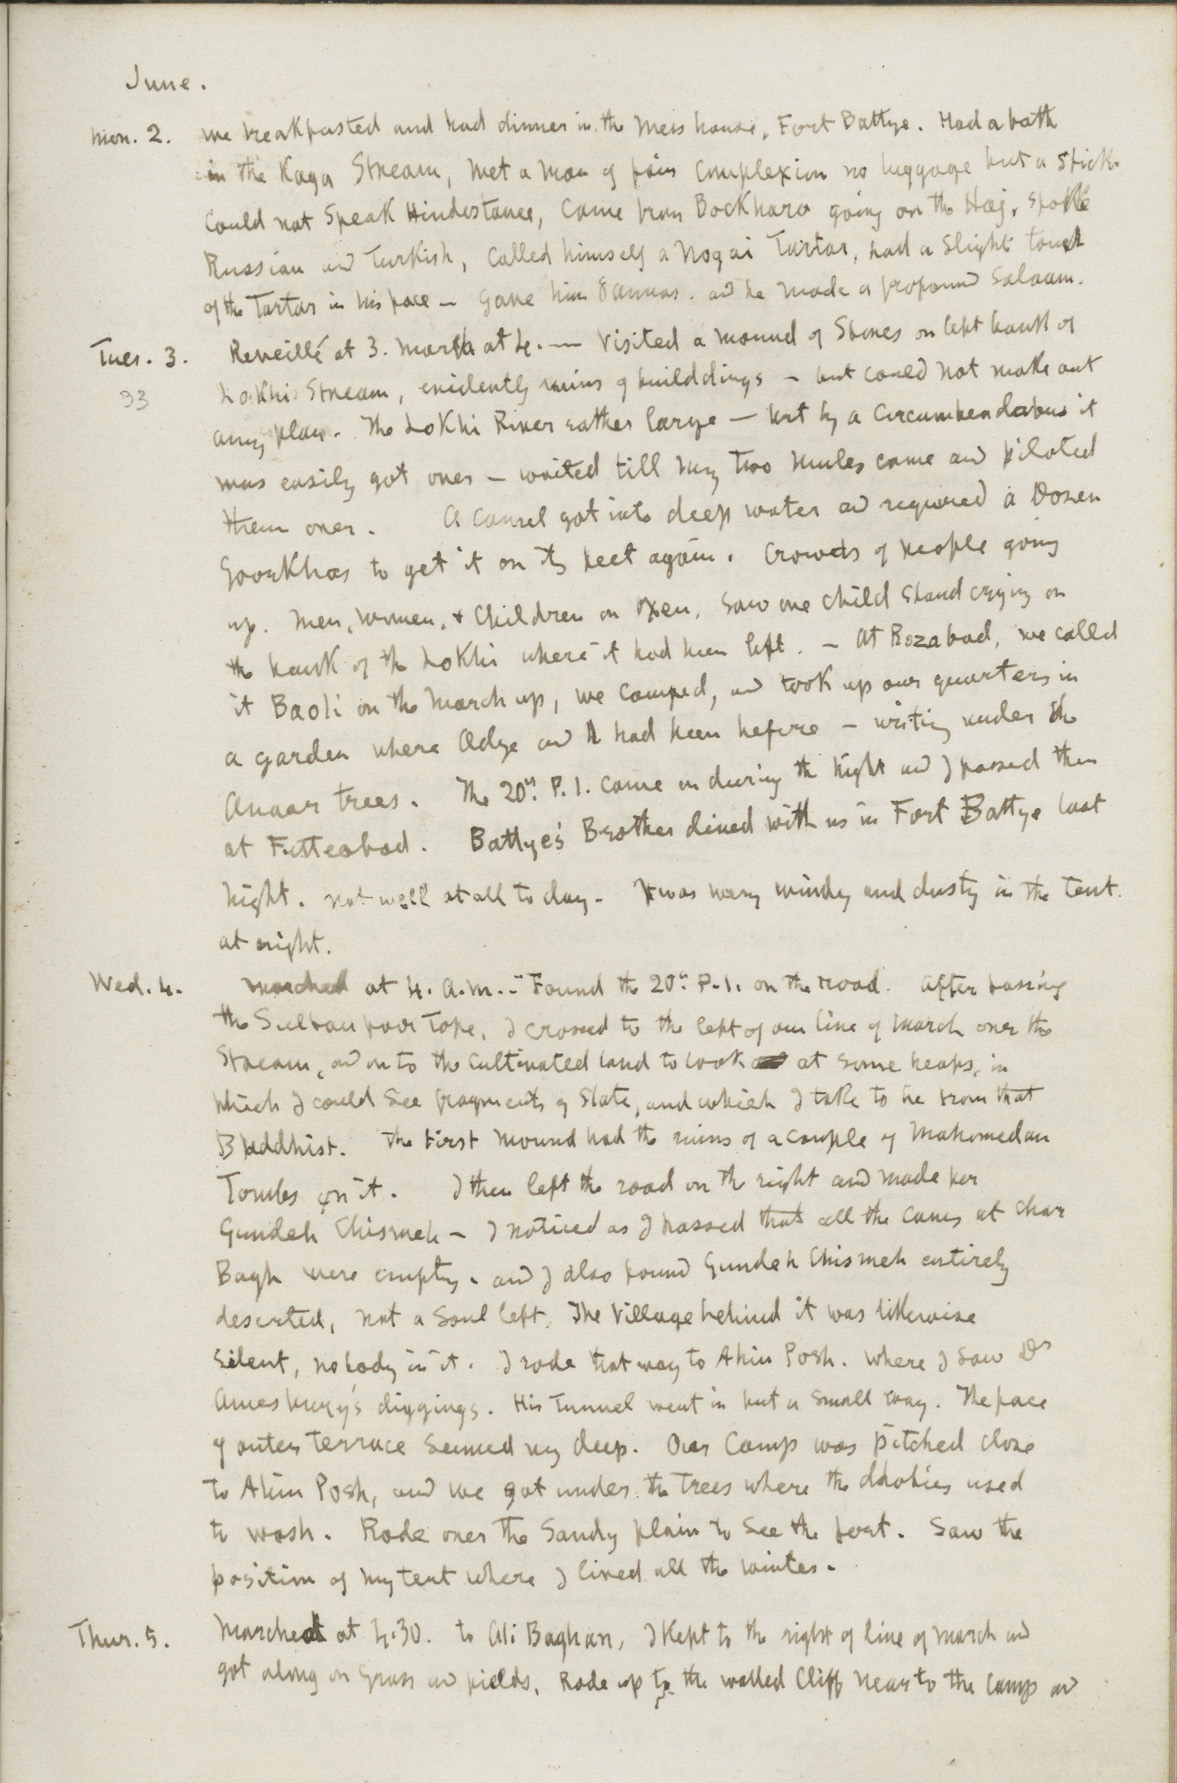 June.
Mon. 2. we breakfasted and had dinner in the Mess house, Fort Battye. Had a bath
in the Kaga Stream, met a man of fair complexion no luggage but a stick
Could not Speak Hindustanee, Came from Bockhara going on the Haj. spoke
Russian and Turkish, Called himself a Nogai Tartar, had a slight touch
of the Tartar in his face – Gave him 8 annas. and he made a profound Salaam.
Tues. 3. Reveillé at 3. march at 4. — Visited a mound of Stones on left bank of
33
Lokhi Stream, evidently ruins of builddings – but could not make out
any plan. The Lokhi River rather large – but by a Circumbendabus it
was easily got over – waited till my two mules came and piloted
them over. A Camel got into deep water and required a Dozen
Goorkhas to get it on its feet again. Crowds of people going
up. Men, Women, & Children on Oxen. Saw one child stand crying on
the bank of the Lokhi where it had been left. – At Rozabad, we called
it Baoli on the March up, we Camped, and took up our quarters in
a garden where Adye and I had been before – writing under the
Anaar trees. The 20th. P.I. came on during the Night and I passed them
at Futteabad. Battye's Brother dined with us in Fort Battye last
Night. not well at all to day. It was very windy and dusty in the tent.
at night.
Wed. 4. Marched at 4. A.M. – Found the 20th P.I. on the road. After passing
the Sultanpoor Tope, I crossed to the left of our line of March over the
Stream, and on to the Cultivated land to look at some heaps, in
which I could see fragments of Slate, and which I take to be from that
Buddhist. The first Mound had the ruins of a couple of Mahomedan
Tombs on it. I then left the road on the right and made for
Gundeh Chismeh – I noticed as I passed that all the caves at Char
Bagh were empty. and I also found Gundeh Chismeh entirely
deserted, not a Soul left. The Village behind it was likewise
Silent, nobody in it. I rode that way to Ahin Posh. where I saw Dr
Amesbury's diggings. His Tunnel went in but a Small way. The face
of outer terrace Seemed very deep. Our Camp was pitched close
to Ahin Posh, and we got under the Trees where the dhobies used
to wash. Rode over the Sandy plain to See the fort. Saw the
position of my tent where I lived all the winter.
Thur. 5. Marched at 4.30. to Ali Baghan, I kept to the right of line of march and
got along on Grass and fields. Rode up to the walled Cliff near to the Camp and